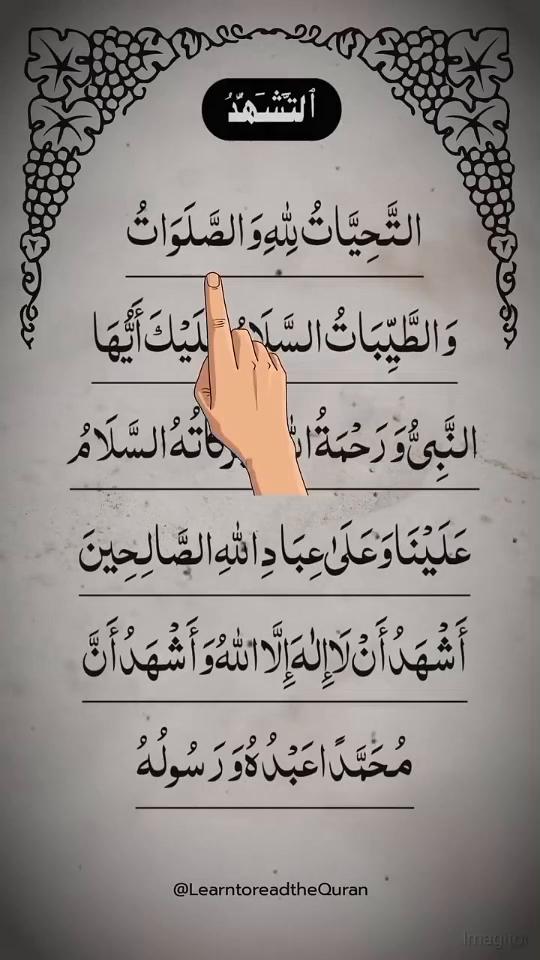 التَّشَهُّدُ
التَّحِيَّاتُ لِلّٰهِ وَالصَّلَوَاتُ
وَالطَّيِّبَاتُ أَيُّهَا
النَّبِيُّ وَرَحْمَةُ السَّلَامُ
عَلَيْنَا وَعَلَىٰ عِبَادِ اللّٰهِ الصَّالِحِينَ
أَشْهَدُ أَنْ لَا إِلٰهَ إِلَّا اللّٰهُ وَأَشْهَدُ أَنَّ
مُحَمَّدًا عَبْدُهُ وَرَسُولُهُ
@LearntoreadtheQuran